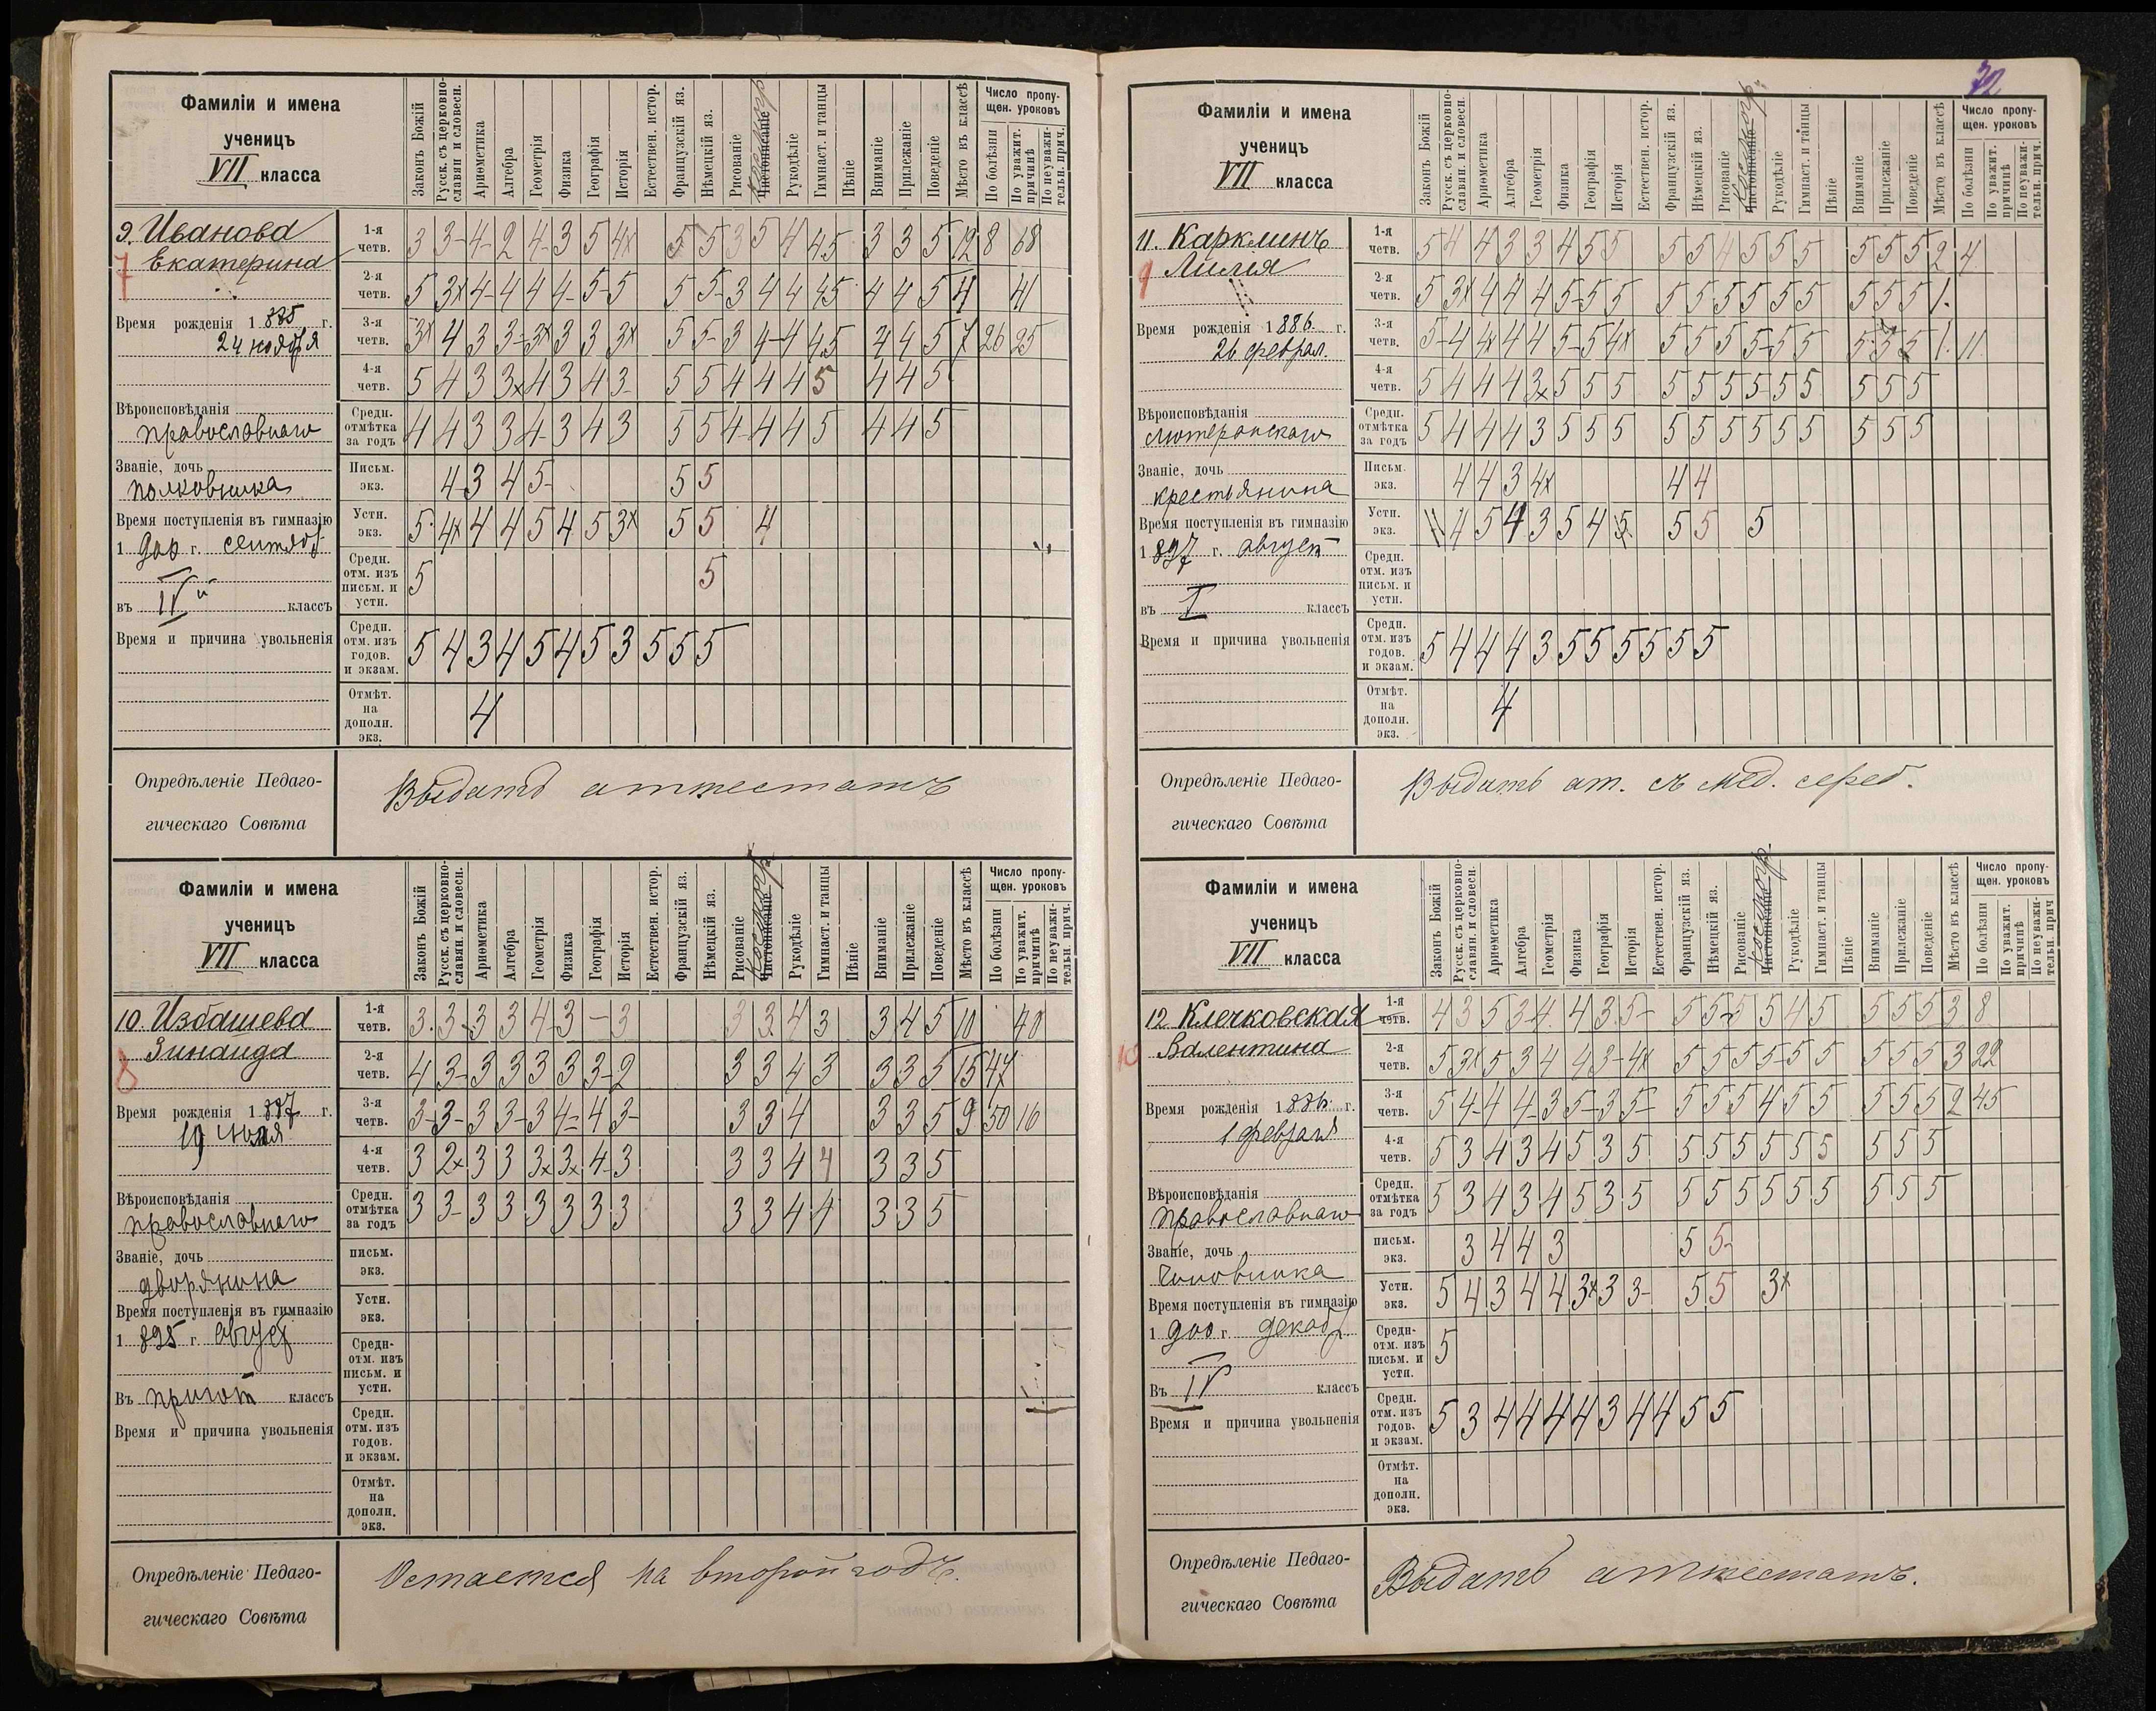 32
Фамиліи и имена
ученицъ
VII класса
Законъ Божій
Русск. съ церковно-
славян. и словесн.
Ариөметика
Алгебра
Геометрія
Физика
Географія
Исторія
Естествен. истор.
Французскій яз.
Нѣмецкій яз.
Рисованіе
Чистописаніе
Рукодѣліе
Гимнаст. и танцы
Пѣніе
Вниманіе
Прилежаніе
Поведеніе
Мѣсто въ классѣ
Число пропу-
щен. уроковъ
По болѣзни
По уважит.
причинѣ
По неуважи-
тельн. прич.
9. Иванова
Екатерина
7
Время рожденія 1885 г.
24 ноября
Вѣроисповѣданія
православнаго
Званіе, дочь
полковника
Время поступленія въ гимназію
1900 г. сентяб.
въ IV й классъ
Время и причина увольненія
1-я
четв.
3 3- 4- 2 4- 3 5 4x 5 5 3 5 4 4 5 3 3 5 12 8 68
2-я
четв.
5 3x 4- 4 4 4- 5- 5 5 5- 3 4 4 4 5 4 4 5 4 41
3-я
четв.
3x 4 3 3- 3x 3 3 3x 5 5- 3 4- 4 4 5 4 4 5 7 26 25
4-я
четв.
5 4 3 3x 4 3 4 3- 5 5 4 4 4 5 4 4 5
Средн.
отмѣтка
за годъ
4 4 3 3 4- 3 4 3 5 5 4- 4 4 5 4 4 5
Письм.
экз.
4 3 4 5- 5 5
Устн.
экз.
5- 4x 4 4 5 4 5 3x 5 5 4
Средн.
отм. изъ
письм. и
устн.
5 5
Средн.
отм. изъ
годов.
и экзам.
5 4 3 4 5 4 5 3 5 5 5
Отмѣт.
на
дополн.
экз.
4
Опредѣленіе Педаго-
гическаго Совѣта
Выдать аттестатъ
Фамиліи и имена
ученицъ
VII класса
Законъ Божій
Русск. съ церковно-
славян. и словесн.
Ариөметика
Алгебра
Геометрія
Физика
Географія
Исторія
Естествен. истор.
Французскій яз.
Нѣмецкій яз.
Рисованіе
Чистописаніе
Рукодѣліе
Гимнаст. и танцы
Пѣніе
Вниманіе
Прилежаніе
Поведеніе
Мѣсто въ классѣ
Число пропу-
щен. уроковъ
По болѣзни
По уважит.
причинѣ
По неуважи-
тельн. прич.
10 Избашева
Зинаида
8
Время рожденія 1887 г.
19 июля
Вѣроисповѣданія
православнаго
Званіе, дочь
дворянина
Время поступленія въ гимназію
1895 г. август
Въ пригот классъ
Время и причина увольненія
1-я
четв.
3. 3- 3 3 4 3 – 3 3 3 4 3 3 4 5 10 40
2-я
четв.
4 3- 3 3 3 3 3- 2 3 3 4 3 3 3 5 15 47
3-я
четв.
3- 3- 3 3- 3 4- 4 3- 3 3 4 3 3 5 9 50 16
4-я
четв.
3 2x 3 3 3x 3x 4 3 3 3 4 4 3 3 5
Средн.
отмѣтка
за годъ
3 3- 3 3 3 3 3 3 3 3 4 4 3 3 5
письм.
экз.
Устн.
экз.
Средн-
отм. изъ
письм. и
устн.
Средн.
отм. изъ
годов.
и экзам.
Отмѣт.
на
дополн.
экз.
Опредѣленіе Педаго-
гическаго Совѣта
Остается на второй годъ.
Фамиліи и имена
ученицъ
VII класса
Законъ Божій
Русск. съ церковно-
славян. и словесн.
Ариөметика
Алгебра
Геометрія
Физика
Географія
Исторія
Естествен. истор.
Французскій яз.
Нѣмецкій яз.
Рисованіе
Чистописаніе
Рукодѣліе
Гимнаст. и танцы
Пѣніе
Вниманіе
Прилежаніе
Поведеніе
Мѣсто въ классѣ
Число пропу-
щен. уроковъ
По болѣзни
По уважит.
причинѣ
По неуважи-
тельн. прич.
11. Карклинъ
Лилія
9
Время рожденія 1886 г.
26 феврал.
Вѣроисповѣданія
лютеранскаго
Званіе, дочь
крестьянина
Время поступленія въ гимназію
1897 г. август
въ I классъ
Время и причина увольненія
1-я
четв.
5 4 4 3 3 4 5 5 5 5 4 5 5 5 5 5 5 2 4
2-я
четв.
5 3x 4 4 4 5- 5 5 5 5 5 5 5 5 5 5 5 1.
3-я
четв.
5- 4 4x 4 4 5- 5 4x 5 5 5 5- 5 5 5 5 5 1. 11
4-я
четв.
5 4 4 4 3x 5 5 5 5 5 5 5 5 5 5 5 5
Средн.
отмѣтка
за годъ
5 4 4 4 3 5 5 5 5 5 5 5 5 5 5 5 5
Письм.
экз.
4 4 3 4x 4 4
Устн.
экз.
4 5 4 3 5 4 5 5 5 5
Средн.
отм. изъ
письм. и
устн.
Средн.
отм. изъ
годов.
и экзам.
5 4 4 4 3 5 5 5 5 5 5
Отмѣт.
на
дополн.
экз.
4
Опредѣленіе Педаго-
гическаго Совѣта
Выдать ат. съ мед. сереб.
Фамиліи и имена
ученицъ
VII класса
Законъ Божій
Русск. съ церковно-
славян. и словесн.
Ариөметика
Алгебра
Геометрія
Физика
Географія
Исторія
Естествен. истор.
Французскій яз.
Нѣмецкій яз.
Рисованіе
Чистописаніе
Рукодѣліе
Гимнаст. и танцы
Пѣніе
Вниманіе
Прилежаніе
Поведеніе
Мѣсто въ классѣ
Число пропу-
щен. уроковъ
По болѣзни
По уважит.
причинѣ
По неуважи-
тельн. прич
12 Клечковская
Валентина
10
Время рожденія 1886 г.
1 февраля
Вѣроисповѣданія
православнаго
Званіе, дочь
чиновника
Время поступленія въ гимназію
1900 г. декаб.
Въ IV классъ
Время и причина увольненія
1-я
четв.
4 3 5 3 4. 4 3 5- 5 5 5 5 4 5 5 5 5 3 8
2-я
четв.
5 3x 5 3 4 4 3- 4x 5 5 5 5- 5 5 5 5 5 3 22
3-я
четв.
5 4- 4 4- 3 5- 3 5- 5 5 5 4 5 5 5 5 5 2 45
4-я
четв.
5 3 4 3 4 5 3 5 5 5 5 5 5 5 5 5 5
Средн.
отмѣтка
за годъ
5 3 4 3 4 5 3 5 5 5 5 5 5 5 5 5 5
письм.
экз.
3 4 4 3 5 5-
Устн.
экз.
5 4 3 4 4 3x 3 3- 5 5 3x
Средн-
отм. изъ
письм. и
устн.
5
Средн.
отм. изъ
годов.
и экзам.
5 3 4 4 4 4 3 4 4 5 5
Отмѣт.
на
дополн.
экз.
Опредѣленіе Педаго-
гическаго Совѣта
Выдать аттестатъ.